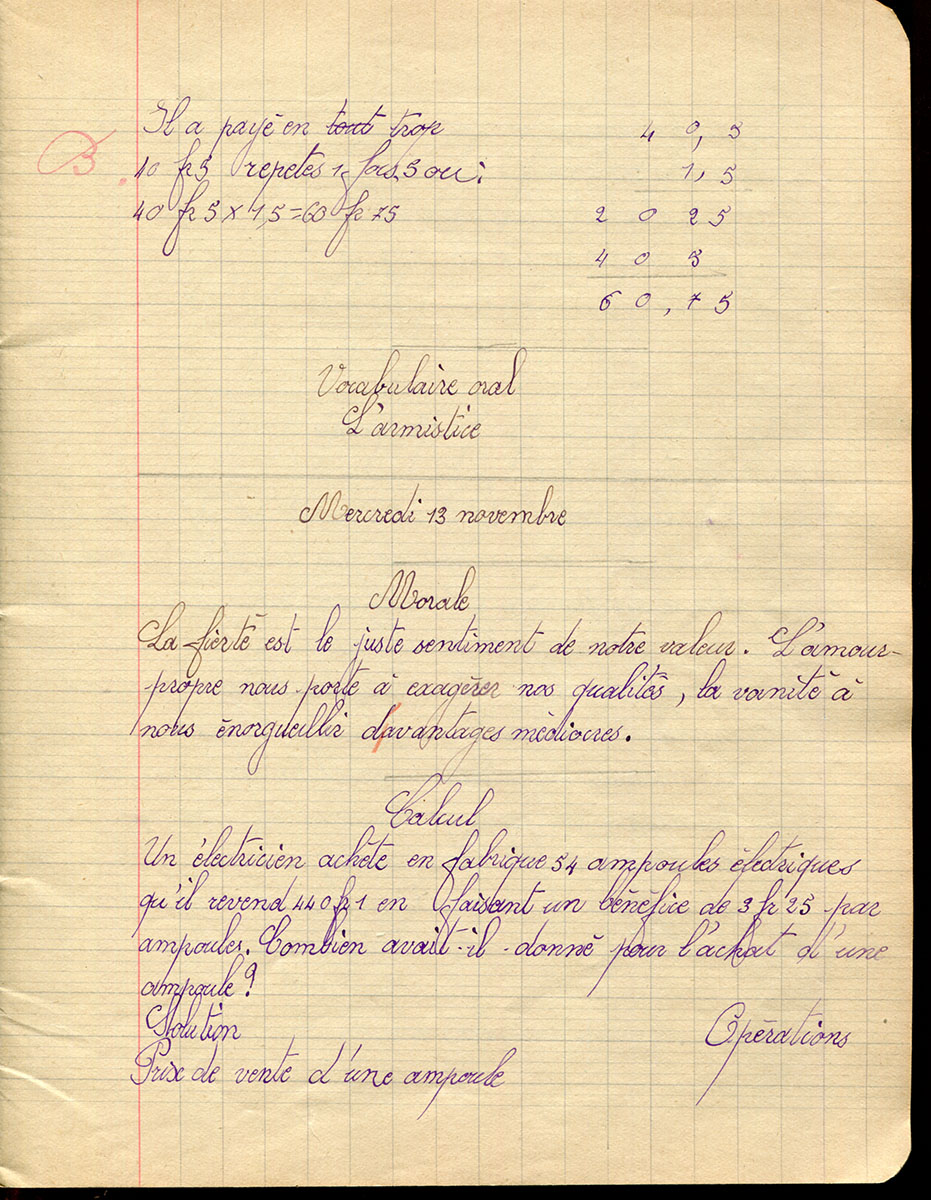 Il a payé en tout trop
40 fr 5 repetés 1 fois, 5 ou :
40 fr 5 x 1,5 = 60 fr 75
B
40,5
1,5
2025
405
60,75
Vocabulaire oral
L'armistice
Mercredi 13 novembre
Morale
La fierté est le juste sentiment de notre valeur. L'amour-
propre nous porte à exagérer nos qualités, la vanité à
nous énorgueillir d'avantages médiocres.
Calcul
Un électricien achète en fabrique 54 ampoules électriques
qu'il revend 440 fr 1 en faisant un bénéfice de 3 fr 25 par
ampoules. Combien avait-il donné pour l'achat d'une
ampoule ?
Solution
Opérations
Prix de vente d'une ampoule